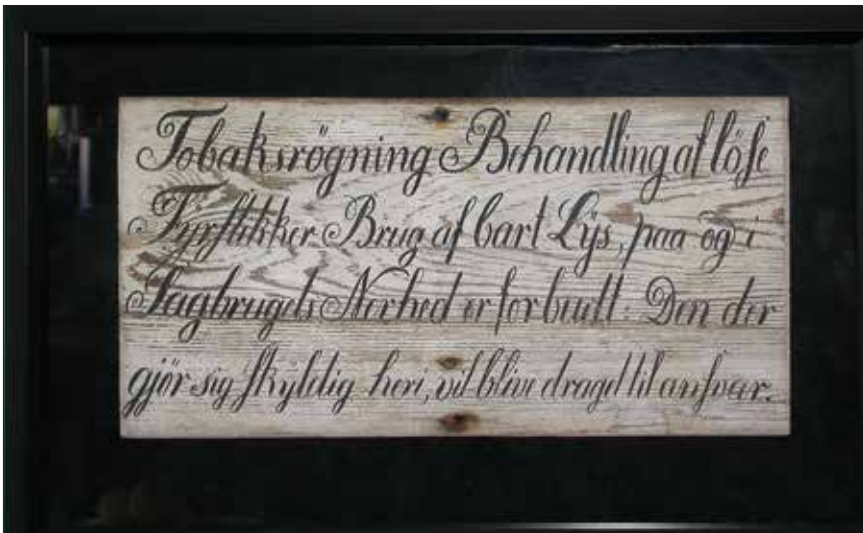 Tobaksrögning Behandling af löse
Fyrstikker Brug af bart Lÿs, paa og i
Sagbrugets Nerhed er forbudt: Den der
gjör sig skyldig heri, vil blive draget til ansvar.